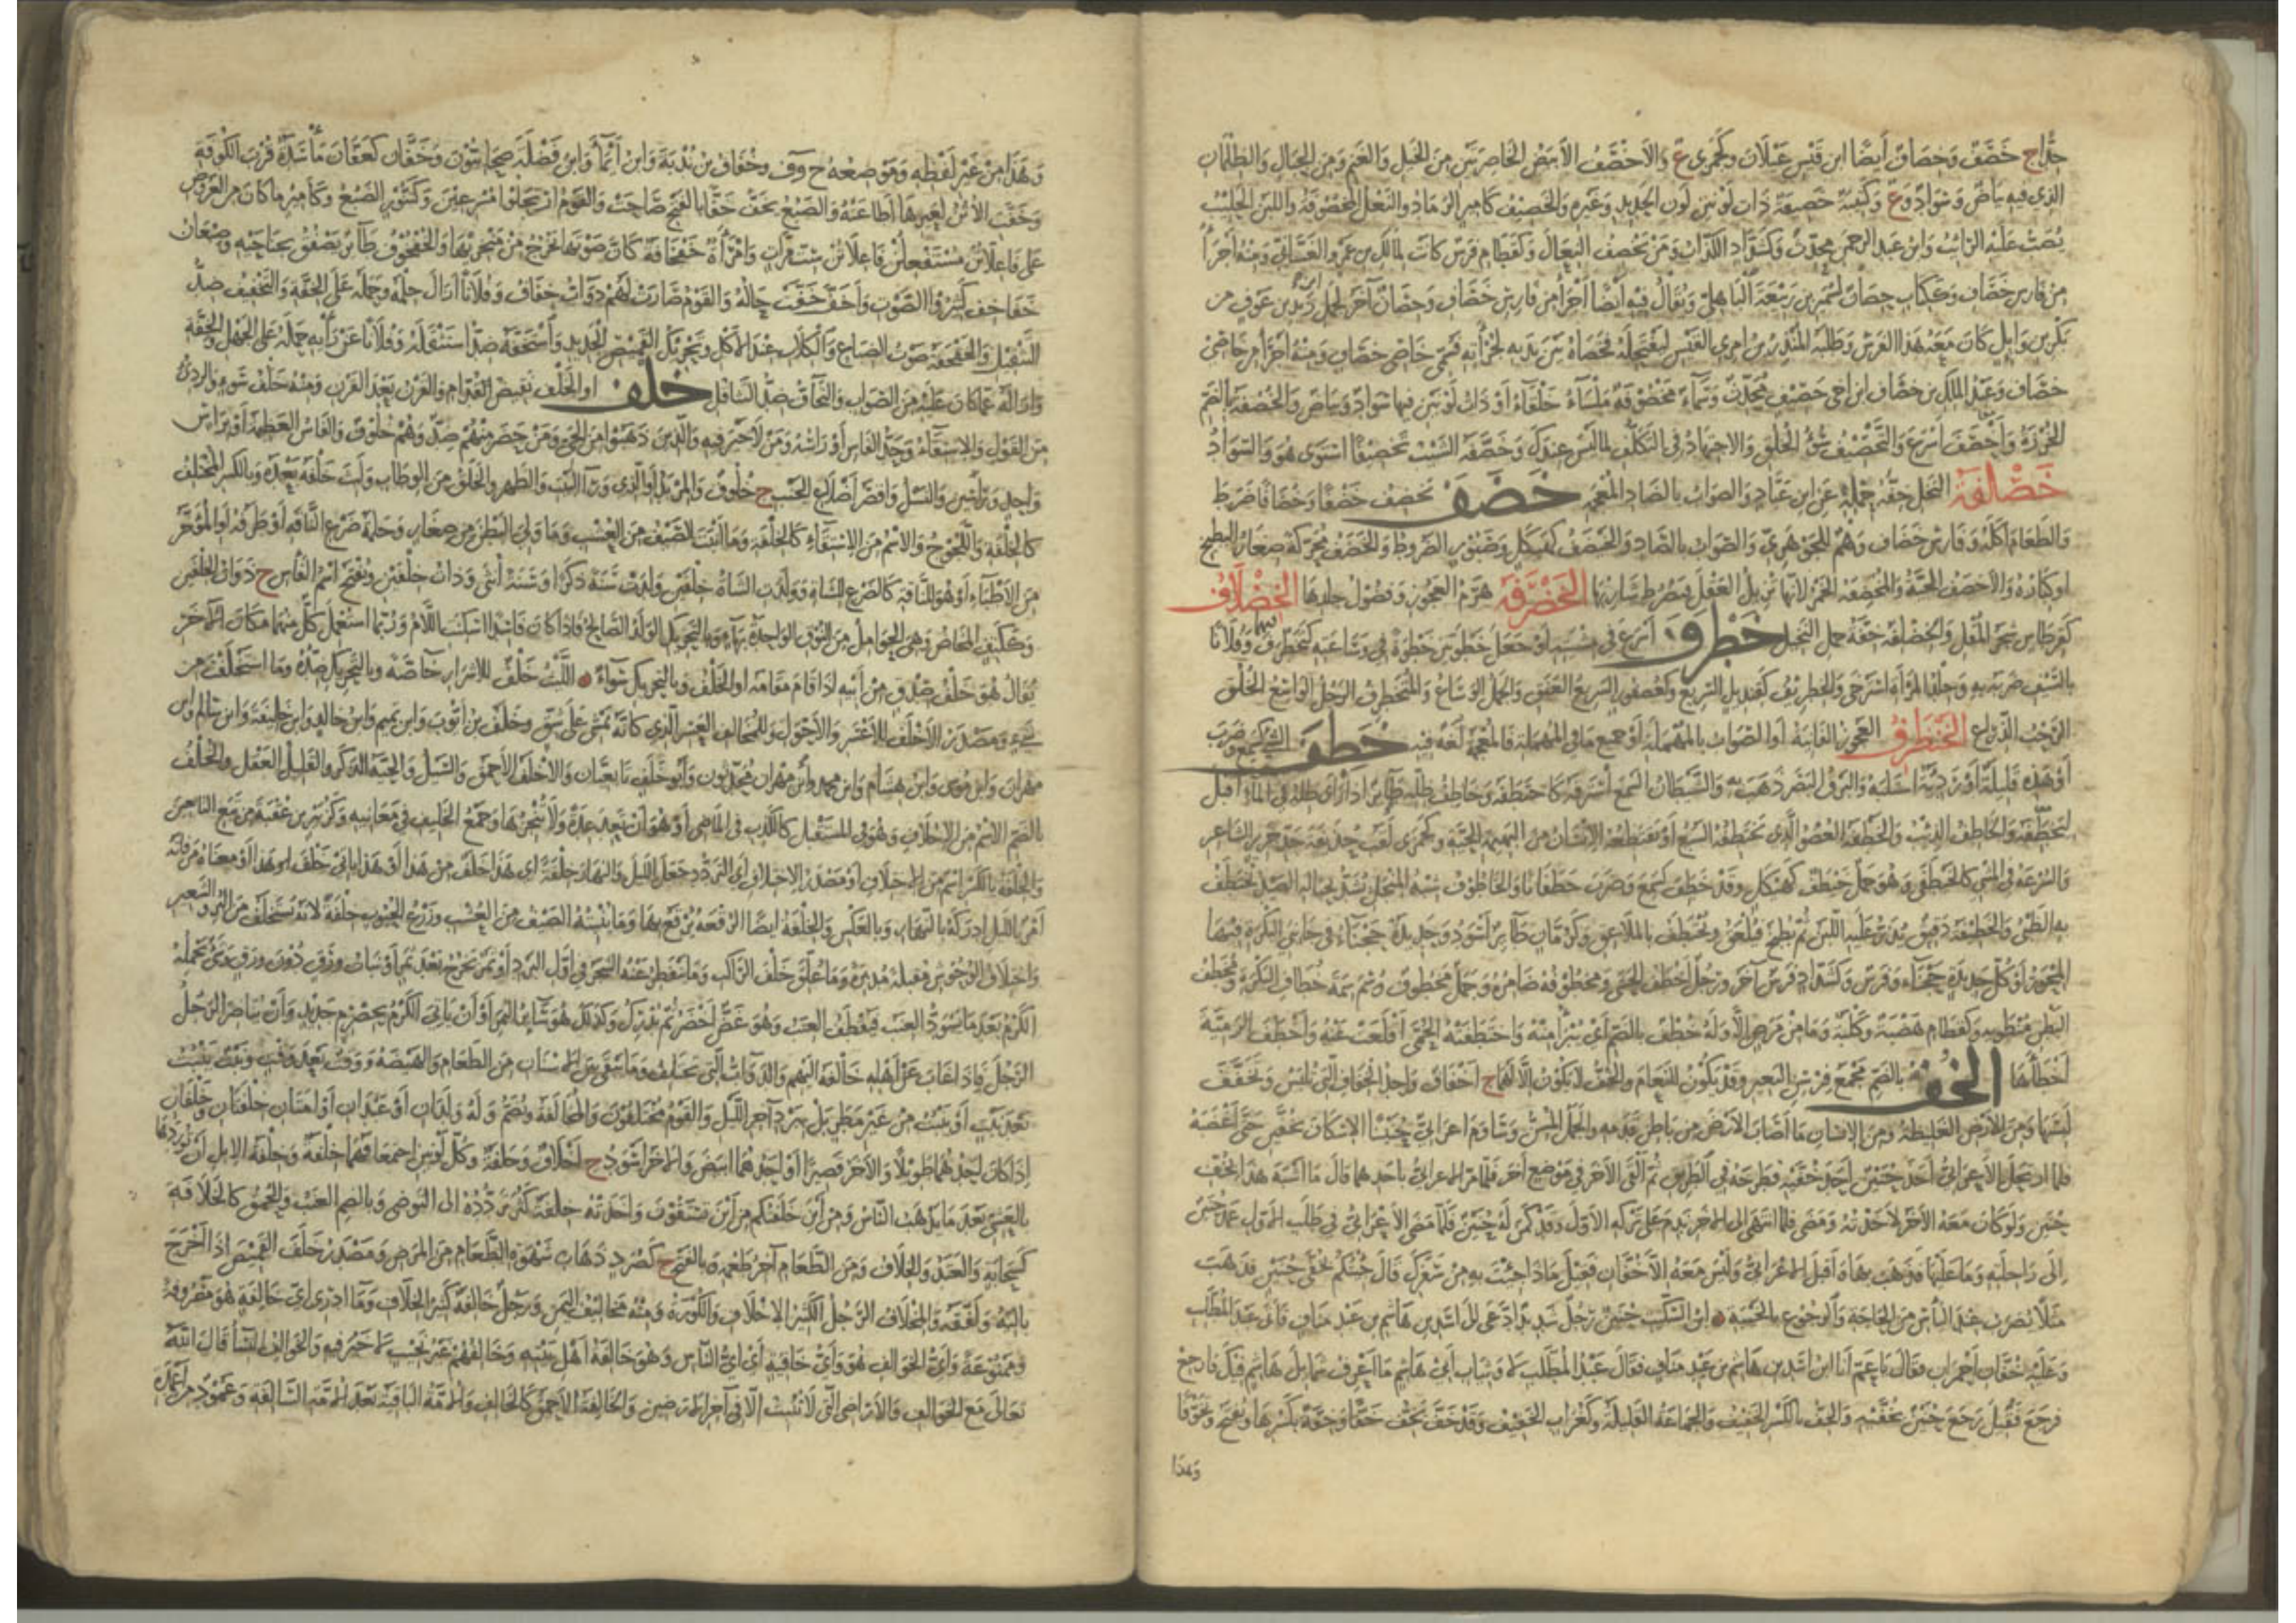 ج خَصَفٌ وَخِصَافٌ أيضًا ابن قَيْسِ عَيْلَانَ وكجَمَزى ع والأَخْصَفُ الأبيضُ الخَاصِرَتَيْنِ مِنَ الخَيْلِ وَالغَنَمِ وَمِنَ الجِبَالِ وَالظِّلْمَانِ
الذي فيه بَيَاضٌ وَسَوَادٌ وَع وَكَتِيبَةٌ خَصِيفَةٌ ذَاتُ لَوْنَيْنِ لَوْنِ الحَدِيدِ وَغَيْرِهِ وَالخَصِيفُ كَأمِيرٍ الرَّمَادُ وَالنَّعْلُ المَخْصُوفَةُ وَاللَّبَنُ الحَلِيبُ
يُصَبُّ عَلَيْهِ الرَّائِبُ وَابنُ عَبْدِ الرَّحْمٰنِ مُحَدِّثٌ وَكَشَدَّادٍ الكَذَّابُ وَمَنْ يَخْصِفُ النِّعَالَ وَكَقَطَامِ فَرَسٌ كَانَت لِمَالِكِ بن عَمْرٍو الغَسَّانِيِّ وَمِنْهُ أَجْرَأُ
مِنْ فَارِسِ خَصَافِ وَكَكِتَابٍ حِصَانٌ لِسُمَيْرِ بن رَبِيعَةَ البَاهِلِيِّ وَيُقَالُ فِيهِ أَيْضًا أَجْرَأُ مِنْ فَارِسِ خَصَافِ وَحِصَانٌ آخَرُ لِحَمَلِ بن زَيْدِ بن عَوْفٍ من
بَكْرِ بن وَائِلٍ كَانَ مَعَهُ هَذَا الفَرَسُ وَطَلَبَهُ المُنْذِرُ بن امْرِئِ القَيْسِ لِيَفْتَحِلَهُ فَخَصَاهُ بَيْنَ يَدَيْهِ لِجُرْأتِهِ فَسُمِّيَ خَاصِيَ خَصَافِ وَمِنْهُ أَجْرَأُ مِنْ خَاصِي
خَصَافِ وَعَبْدُ المَلِكِ بن خَصَاف ابن أخي خَصِيفٍ مُحَدِّثٌ وَسَمَاءٌ مَخْصُوفَةٌ مَلْسَاءُ خَلْقَاءُ أَوْ ذَاتُ لَوْنَيْنِ فيها سَوَادٌ وَبَيَاضٌ وَالخُصْفَةُ بِالضَّمِّ
الخُرْزَةُ وَأَخْصَفَ أَسْرَعَ وَالتَّخْصِيفُ سُوءُ الخُلُقِ وَالاجْتِهَادُ في التَّكَلُّفِ بِمَا لَيْسَ عِنْدَكَ وَخَصَّفَهُ الشَّيْبُ تَخْصِيفًا اسْتَوَى هُوَ وَالسَّوَادُ
خَصْلَفَةُ النَّخْلِ خِفَّةُ حَمْلِهِ عَنِ ابن عَبَّادٍ وَالصَّوَابُ بِالضَّادِ المُعْجَمَةِ خَضَفَ يَخْضِفُ خَضْفًا وَخُضَافًا ضَرَطَ
وَالطَّعَامَ أَكَلَهُ وَفَارِسُ خَضَافِ وَهْمٌ لِلْجَوْهَرِيِّ وَالصَّوَابُ بِالصَّادِ وَالخَيْضَفُ كَهَيْكَلٍ وَصَبُورٍ الضَّرُوطُ وَالخَضَفُ مُحَرَّكَةً صِغَارُ البِطِّيخِ
أو كِبَارُهُ وَالأَخْضَفُ الحَيَّةُ وَالمُخْضِفَةُ الخَمْرُ لأنَّهَا تُزِيلُ العَقْلَ فَيَضْرِطُ شَارِبُهَا الخَضْرَفَةُ هَرَمُ العَجُوزِ وَفُضُولُ جِلْدِهَا الخِضْلَافُ
كَقِرْطَاسٍ شَجَرُ المُقْلِ وَالخَضْلَفَةُ خِفَّةُ حَمْلِ النَّخِيلِ خَطْرَفَ أَسْرَعَ في مَشْيِهِ أَوْ جَعَلَ خَطْوَتَيْنِ خَطْوَةً في وَسَاعَتِهِ كَتَخَطْرَفَ وَفُلَانًا
بِالسَّيْفِ ضَرَبَهُ بِهِ وَجِلْدُ المَرْأَةِ اسْتَرْخَى وَالخِطْرِيفُ كَقِنْدِيلٍ السَّرِيعُ وَكَعُصْفُورٍ السَّرِيعُ العَنَقِ وَالجَمَلُ الوَسَاعُ وَالمُتَخَطْرِفُ الرَّجُلُ الوَاسِعُ الخُلُقِ
الرَّحْبُ الذِّرَاعِ الخَنْظَرِفُ العَجُوزُ الفَانِيَةُ أَوِ الصَّوَابُ بِالمُهْمَلَةِ أَوْ جَمِيعُ مَا في المُهْمَلَةِ فَالمُعْجَمَةُ لُغَةٌ فِيهِ خَطِفَ الشيء كَسَمِعَ وَضَرَبَ
أَوْ هَذِهِ قَلِيلَةٌ أَوْ رَدِيئَةٌ اسْتَلَبَهُ وَالبَرْقُ البَصَرَ ذَهَبَ بِهِ وَالشَّيْطَانُ السَّمْعَ اسْتَرَقَهُ كَاخْتَطَفَهُ وَخَاطِفُ ظِلِّهِ طَائِرٌ إذَا رَأَى ظِلَّهُ في المَاءِ أَقْبَلَ
لِيَخْطَفَهُ وَالخَاطِفُ الذِّئْبُ وَالخَطْفَةُ العُضْوُ الَّذِي يَخْتَطِفُهُ السَّبُعُ أَوْ يَقْتَطِعُهُ الإنْسَانُ مِنَ البَهِيمَةِ الحَيَّةِ وَكجَمَزَى لَقَبُ حُذَيْفَةَ جَدِّ جَرِيرٍ الشَّاعِرِ
وَالسُّرْعَةُ في المَشْيِ كَالخَيْطَفَى وَهُوَ جَمَلٌ خَيْطَفٌ كَهَيْكَلٍ وَقَدْ خَطِفَ كَسَمِعَ وَضَرَبَ خَطَفَانًا وَالخَاطُوفُ شِبْهُ المِنْجَلِ يُشَدُّ بِحِبَالَةِ الصَّيْدِ لِيُخْتَطَفَ
بِهِ الظَّبْيُ وَالخَطِيفَةُ دَقِيقٌ يُذَرُّ عَلَيْهِ اللَّبَنُ ثُمَّ يُطْبَخُ فَيُلْعَقُ وَيُخْتَطَفُ بِالمَلَاعِقِ وَكَرُمَّانٍ طَائِرٌ أَسْوَدُ وَحَدِيدَةٌ حَجْنَاءُ في جَانِبَيِ البَكْرَةِ فِيهَا
المِحْوَرُ أَوْ كُلُّ حَدِيدَةٍ حَجْنَاءَ وَفَرَسٌ وَكَشَدَّادٍ فَرَسٌ آخَرُ وَرَجُلٌ أَخْطَفُ الحَشَى وَمَخْطُوفُهُ ضَامِرُهُ وَجَمَلٌ مَخْطُوفٌ وُسِمَ سِمَةَ خُطَّافِ البَكْرَةِ وَمُخْطَفُ
البَطْنِ مُنْطَوِيهِ وَكَقَطَامِ هَضْبَةٌ وَكَلْبَةٌ وَمَا مِنْ مَرَضٍ إلَّا وَلَهُ خُطْفٌ بِالضَّمِّ أَيْ يُبْرَأُ مِنْهُ وَاخْتَطَفَتْهُ الحُمَّى أَقْلَعَتْ عَنْهُ وَأَخْطَفَ الرَّمِيَّةَ
أَخْطَأَهَا الخُفُّ بِالضَّمِّ مَجْمَعُ فِرْسِنِ البَعِيرِ وَقَدْ يَكُونُ لِلنَّعَامِ وَالخُفُّ لَا يَكُونُ إلَّا لَهُمَا ج أَخْفَافٌ وَاحِدُ الخِفَافِ الَّتِي تُلْبَسُ وَتَخَفَّفَ
لَبِسَهَا وَمِنَ الأَرْضِ الغَلِيظَةُ وَمِنَ الإنْسَانِ مَا أَصَابَ الأَرْضَ مِنْ بَاطِنِ قَدَمِهِ وَالجَمَلُ المُسِنُّ وَسَاوَمَ أعرابيٌّ حُنَيْنًا الإسْكَافَ بِخُفَّيْنِ حَتَّى أَغْضَبَهُ
فلما ارْتَحَلَ الأَعْرَابِيُّ أَخَذَ حُنَيْنٌ أَحَدَ خُفَّيْهِ فَطَرَحَهُ في الطَّرِيقِ ثُمَّ أَلْقَى الآخَرَ في مَوْضِعٍ آخَرَ فَلَمَّا مَرَّ الأعرابيُّ بأَحَدِهِمَا قَالَ مَا أَشْبَهَ هَذَا بِخُفِّ
حُنَيْنٍ وَلَوْ كَانَ مَعَهُ الآخَرُ لَأَخَذْتُهُ وَمَضَى فَلَمَّا انْتَهَى إلى الآخَرِ نَدِمَ عَلَى تَرْكِهِ الأَوَّلَ وَقَدْ كَمَنَ لَهُ حُنَيْنٌ فَلَمَّا مَضَى الأَعْرَابِيُّ في طَلَبِ الأول عَمَدَ حُنَيْنٌ
إلَى رَاحِلَتِهِ وَمَا عَلَيْهَا فَذَهَبَ بِهَا وَأَقْبَلَ الأعرابيُّ وَلَيْسَ مَعَهُ إلَّا خُفَّانِ فَقِيلَ مَاذَا جِئْتَ بِهِ مِنْ سَفَرِكَ قَالَ جِئْتُكُمْ بِخُفَّيْ حُنَيْنٍ فَذَهَبَ
مَثَلًا يُضْرَبُ عِنْدَ اليَأْسِ مِنَ الحَاجَةِ وَالرُّجُوعِ بِالخَيْبَةِ ابن السِّكِّيتِ حُنَيْنٌ رَجُلٌ شَدِيدٌ ادَّعَى إلى أَسَدِ بن هَاشِمِ بن عَبْدِ مَنَافٍ فَأَتَى عَبْدَ المُطَّلِبِ
وَعَلَيْهِ خُفَّانِ أَحْمَرَانِ فَقَالَ يَا عَمِّ أَنَا ابن أَسَدِ بن هَاشِمِ بن عَبْدِ مَنَافٍ فَقَالَ عَبْدُ المُطَّلِبِ لَا وَثِيَابِ أَبِي هَاشِمٍ مَا أَعْرِفُ شَمَائِلَ هَاشِمٍ فِيكَ فَارْجِعْ
فرَجَعَ فَقِيلَ رَجَعَ حُنَيْنٌ بِخُفَّيْهِ وَالخِفُّ بِالكَسْرِ الخَفِيفُ وَالجَمَاعَةُ القَلِيلَةُ وَكَغُرَابٍ الخَفِيفُ وَقَدْ خَفَّ يَخِفُّ خَفًّا وَخِفَّةً بِكَسْرِهَا وَتُفْتَحُ وَتَخَوُّفًا
وهذا
وَهَذَا مِنْ غَيْرِ لَفْظِهِ وَمَوْضِعُهُ خ و ف وَخُفَافُ بن نُدْبَةَ وَابنُ أَيْمَاءَ وَابنُ نَضْلَةَ صَحَابِيُّونَ وَخَفَّانُ كَعَفَّانَ مَأْسَدَةٌ قُرْبَ الكُوفَةِ
وَخَفَّتِ الأُتُنُ لِعَيْرِهَا أَطَاعَتْهُ وَالضَّبُعُ تَخِفُّ خَفًّا بِالفَتْحِ صَاحَتْ وَالقَوْمُ ارْتَحَلُوا مُسْرِعِينَ وَكَتَنُّورٍ الضَّبُعُ وَكَأَمِيرٍ مَا كَانَ مِنَ العَرُوضِ
عَلَى فَاعِلَاتُنْ مُسْتَفْعِلُنْ فَاعِلَاتُنْ سِتَّ مَرَّاتٍ وَامْرَأَةٌ خَفْخَافَةٌ كَأَنَّ صَوْتَهَا يَخْرُجُ مِنْ مَنْخَرَيْهَا وَالخُفْخُوفُ طَائِرٌ يُصَفِّقُ بِجَنَاحَيْهِ وَضِبْعَانٌ
خُفَاخِفٌ كَثِيرُ الصَّوْتِ وَأَخَفَّ خَفَّتْ حَالُهُ وَالقَوْمُ صَارَتْ لَهُمْ دَوَابُّ خِفَافٌ وَفُلَانًا أَزَالَ حِلْمَهُ وَحَمَلَهُ عَلَى الخِفَّةِ وَالتَّخْفِيفُ ضِدُّ
التَّثْقِيلِ وَالخَفْخَفَةُ صَوْتُ الضِّبَاعِ وَالكِلَابِ عِنْدَ الأَكْلِ وَتَحْرِيكُ القَمِيصِ الجَدِيدِ وَاسْتَخَفَّهُ ضِدُّ اسْتَثْقَلَهُ وَفُلَانًا عَنْ رَأْيِهِ حَمَلَهُ عَلَى الجَهْلِ وَالخِفَّةِ
وَأَزَالَهُ عَمَّا كَانَ عَلَيْهِ مِنَ الصَّوَابِ وَالتَّخَافُّ ضِدُّ التَّثَاقُلِ خَلْفُ أو الخَلْفُ نَقِيضُ القُدَّامِ وَالقَرْنُ بَعْدَ القَرْنِ وَمِنْهُ خَلْفُ سُوءٍ وَالرَّدِيءُ
مِنَ القَوْلِ وَالاسْتِقَاءُ وَحَدُّ الفَأْسِ أَوْ رَأْسُهُ وَمَنْ لَا خَيْرَ فِيهِ وَالَّذِينَ ذَهَبُوا مِنَ الحَيِّ وَمَنْ حَضَرَ مِنْهُمْ ضِدٌّ وَهُمْ خُلُوفٌ وَالفَأْسُ العَظِيمَةُ أَوْ بِرَأْسٍ
وَاحِدٍ وَرَأْسَيْنِ وَالنَّسْلُ وَأَقْصَرُ أَضْلَاعِ الجَنْبِ ج خُلُوفٌ وَالمِرْبَدُ أَوِ الَّذِي وَرَاءَ البَيْتِ وَالظَّهْرُ وَالخَلَقُ مِنَ الوِطَابِ وَلَبِثَ خَلْفَهُ بَعْدَهُ وَبِالكَسْرِ المُخْتَلِفُ
كَالخِلْفَةِ وَاللَّجُوجُ وَالاسْمُ مِنَ الاسْتِقَاءِ كَالخِلْفَةِ وَمَا أَنْبَتَ الصَّيْفُ مِنَ العُشْبِ وَمَا وَلِيَ البَطْنَ مِنْ صِغَارِ وَحَلَمَةُ ضَرْعِ النَّاقَةِ أَوْ طَرَفُهُ أَوِ المُؤَخَّرُ
مِنَ الأَطْبَاءِ أَوْ هُوَ لِلنَّاقَةِ كَالضَّرْعِ لِلشَّاةِ وَوَلَدَتِ الشَّاةُ خِلْفَيْنِ وَلَدَتْ سَنَةً ذَكَرًا وَسَنَةً أُنْثَى وَذَاتُ خِلْفَيْنِ وَتُفْتَحُ اسْمُ الفَأْسِ ج ذَوَاتُ الخِلْفَيْنِ
وَكَكَتِفٍ المَخَاضُ وَهِيَ الحَوَامِلُ مِنَ النُّوقِ الوَاحِدَةُ بِهَاءٍ وَبِالتَّحْرِيكِ الوَلَدُ الصَّالِحُ فَإذَا كَانَ فَاسِدًا أُسْكِنَتِ اللَّامُ وَرُبَّمَا اسْتُعْمِلَ كُلٌّ مِنْهُمَا مَكَانَ الآخَرِ
يُقَالُ هُوَ خَلْفُ صِدْقٍ مِنْ أَبِيهِ إذَا قَامَ مَقَامَهُ أَوِ الخَلْفُ وَبِالتَّحْرِيكِ سَوَاءٌ اللَّيْثُ خَلْفٌ للأَشْرَارِ خَاصَّةً وَبِالتَّحْرِيكِ ضِدُّهُ وَمَا اسْتَخْلَفْتَ مِنْ
شَيْءٍ وَمَصْدَرُ الأَخْلَفِ للأَعْسَرِ وَالأَحْوَلِ وَلِلْمُخَالِفِ العَسِرِ الَّذِي كَأَنَّهُ يَمْشِي عَلَى شِقٍّ وَخَلَفُ بن أَيُّوبَ وَابن تَمِيمٍ وَابن خَالِدٍ وَابن خَلِيفَةَ وَابن سَالِمٍ وَابن
مِهْرَانَ وَابن مُوسَى وَابن هِشَامٍ وَابن مُحَمَّدٍ وابن مِهْرَانَ مُحَدِّثُونَ وَأَبُو خَلَفٍ تَابِعِيَّانِ وَالأَخْلَفُ الأَحْمَقُ وَالسَّيْلُ وَالحَيَّةُ الذَّكَرُ وَالقَلِيلُ العَقْلِ وَالخُلْفُ
بِالضَّمِّ الاسْمُ مِنَ الإخْلَافِ وَهُوَ في المُسْتَقْبَلِ كَالكَذِبِ في المَاضِي أَوْ هُوَ أَنْ تَعِدَ عِدَةً وَلَا تُنْجِزَهَا وَجَمْعُ الخَلِيفِ في مَعَانِيهِ وَكَزُبَيْرٍ بن عُقْبَةَ مِنْ تَبَعِ التَّابِعِينَ
وَالخِلْفَةُ بِالكَسْرِ اسْمٌ مِنَ الاختلاف أَوْ مَصْدَرُ الاخْتِلَافِ أَيِ التَّرَدُّدِ جَعَلَ اللَّيْلَ وَالنَّهَارَ خِلْفَةً أَيْ هَذَا خَلَفٌ مِنْ هَذَا أَوْ هَذَا يَأْتِي خَلْفَ هَذَا أَوْ مَعْنَاهُ مَنْ فَاتَهُ
أَمْرٌ بِاللَّيْلِ أَدْرَكَهُ بِالنَّهَارِ وَبِالعَكْسِ وَالخِلْفَةُ أَيْضًا الرُّقْعَةُ يُرْقَعُ بِهَا وَمَا يُنْبِتُهُ الصَّيْفُ مِنَ العُشْبِ وَزَرْعُ الحُبُوبِ خِلْفَةٌ لأَنَّهُ يُسْتَخْلَفُ مِنَ البُرِّ وَالشَّعِيرِ
وَاخْتِلَافُ الوُحُوشِ مُقْبِلَةً مُدْبِرَةً وَمَا عُلِّقَ خَلْفَ الرَّاكِبِ وَمَا يَتَفَطَّرُ عَنْهُ الشَّجَرُ في أَوَّلِ البَرْدِ أَوْ ثَمَرٌ يَخْرُجُ بَعْدَ ثَمَرٍ أَوْ نَبَاتُ وَرَقٍ دُونَ وَرَقٍ وَشَيْءٌ يَحْمِلُهُ
الكَرْمُ بَعْدَ مَا يَسْوَدُّ العِنَبُ فَيُقْطَفُ العِنَبُ وَهُوَ غَضٌّ أَخْضَرُ ثُمَّ يُدْرِكُ وَكَذٰلِكَ هُوَ مِنْ سَائِرِ الثَّمَرِ أَوْ أَنْ يَأْتِيَ الكَرْمُ بِحِصْرِمٍ جَدِيدٍ وَأَنْ يُنَاصِرَ الرَّجُلُ
الرَّجُلَ فَإذَا غَابَ عَنْ أَهْلِهِ خَالَفَهُ إلَيْهِمْ وَالدَّوَابُّ الَّتِي تَخْتَلِفُ وَمَا يَبْقَى بَيْنَ الأسنان مِنَ الطَّعَامِ وَالهَيْضَةُ وَوَقْتٌ بَعْدَ وَقْتٍ وَنَبْتٌ يَنْبُتُ
بَعْدَ نَبْتٍ أَوْ يَنْبُتُ مِنْ غَيْرِ مَطَرٍ بَلْ بِبَرْدِ آخِرِ اللَّيْلِ وَالقَوْمُ المُخْتَلِفُونَ وَالمُخَالَفَةُ وَتُضَمُّ وَلَهُ وَلَدَانِ أَوْ عَبْدَانِ أَوْ أَمَتَانِ خِلْفَتَانِ وَخِلْفَانِ
إذَا كَانَ أَحَدُهُمَا طَوِيلًا وَالآخَرُ قَصِيرًا أَوْ أَحَدُهُمَا أَبْيَضَ وَالآخَرُ أَسْوَدَ ج أَخْلَافٌ وَخِلْفَةٌ وَكُلُّ لَوْنَيْنِ اجْتَمَعَا فَهُمَا خِلْفَةٌ وَخِلْفَةُ الإبِلِ أَنْ تُورِدَهَا
بِالعَشِيِّ بَعْدَ مَا يَذْهَبُ النَّاسُ وَمِنْ أَيْنَ خِلْفَتُكُمْ مِنْ أَيْنَ تَسْتَقُونَ وَأَخَذَتْهُ خِلْفَةٌ كَثُرَ تَرَدُّدُهُ إلى التَّوَضُّؤِ وَبِالضَّمِّ العَيْبُ وَالحُمْقُ كَالخَلَافَةِ
كَسَحَابَةٍ وَالعَتَهُ وَالخِلَافُ وَمِنَ الطَّعَامِ آخِرُ طَعْمِهِ وَبِالفَتْحِ ج كَصُرَدٍ ذَهَابُ شَهْوَةِ الطَّعَامِ مِنَ المَرَضِ وَمَصْدَرُ خَلَفَ القَمِيصَ إذَا أَخْرَجَ
بَالِيَهُ وَلَفَّقَهُ وَالمِخْلَافُ الرَّجُلُ الكَثِيرُ الإخْلَافِ وَالكُورَةُ وَمِنْهُ مَخَالِيفُ اليَمَنِ وَرَجُلٌ خَالِفَةٌ كَثِيرُ الخِلَافِ وَمَا أَدْرِي أَيُّ خَالِفَةٍ هُوَ مَصْرُوفَةً
وَمَمْنُوعَةً وَأَيُّ الخَوَالِفِ هُوَ وَأَيُّ خَافِيَةٍ أَيْ أَيُّ النَّاسِ وَهُوَ خَالِفَةُ أَهْلِ بَيْتِهِ وَخَالِفُهُمْ غَيْرُ نَجِيبٍ لَا خَيْرَ فِيهِ وَالخَوَالِفُ النِّسَاءُ قَالَ اللهُ
تَعَالَى مَعَ الخَوَالِفِ وَالأَرَاضِي الَّتِي لَا تُنْبِتُ إلَّا في آخِرِ الأرضين وَالخَالِفَةُ الأَحْمَقُ كَالخَالِفِ وَالأُمَّةُ البَاقِيَةُ بَعْدَ الأُمَّةِ السَّالِفَةِ وَعَمُودٌ مِنْ أَعْمِدَةِ